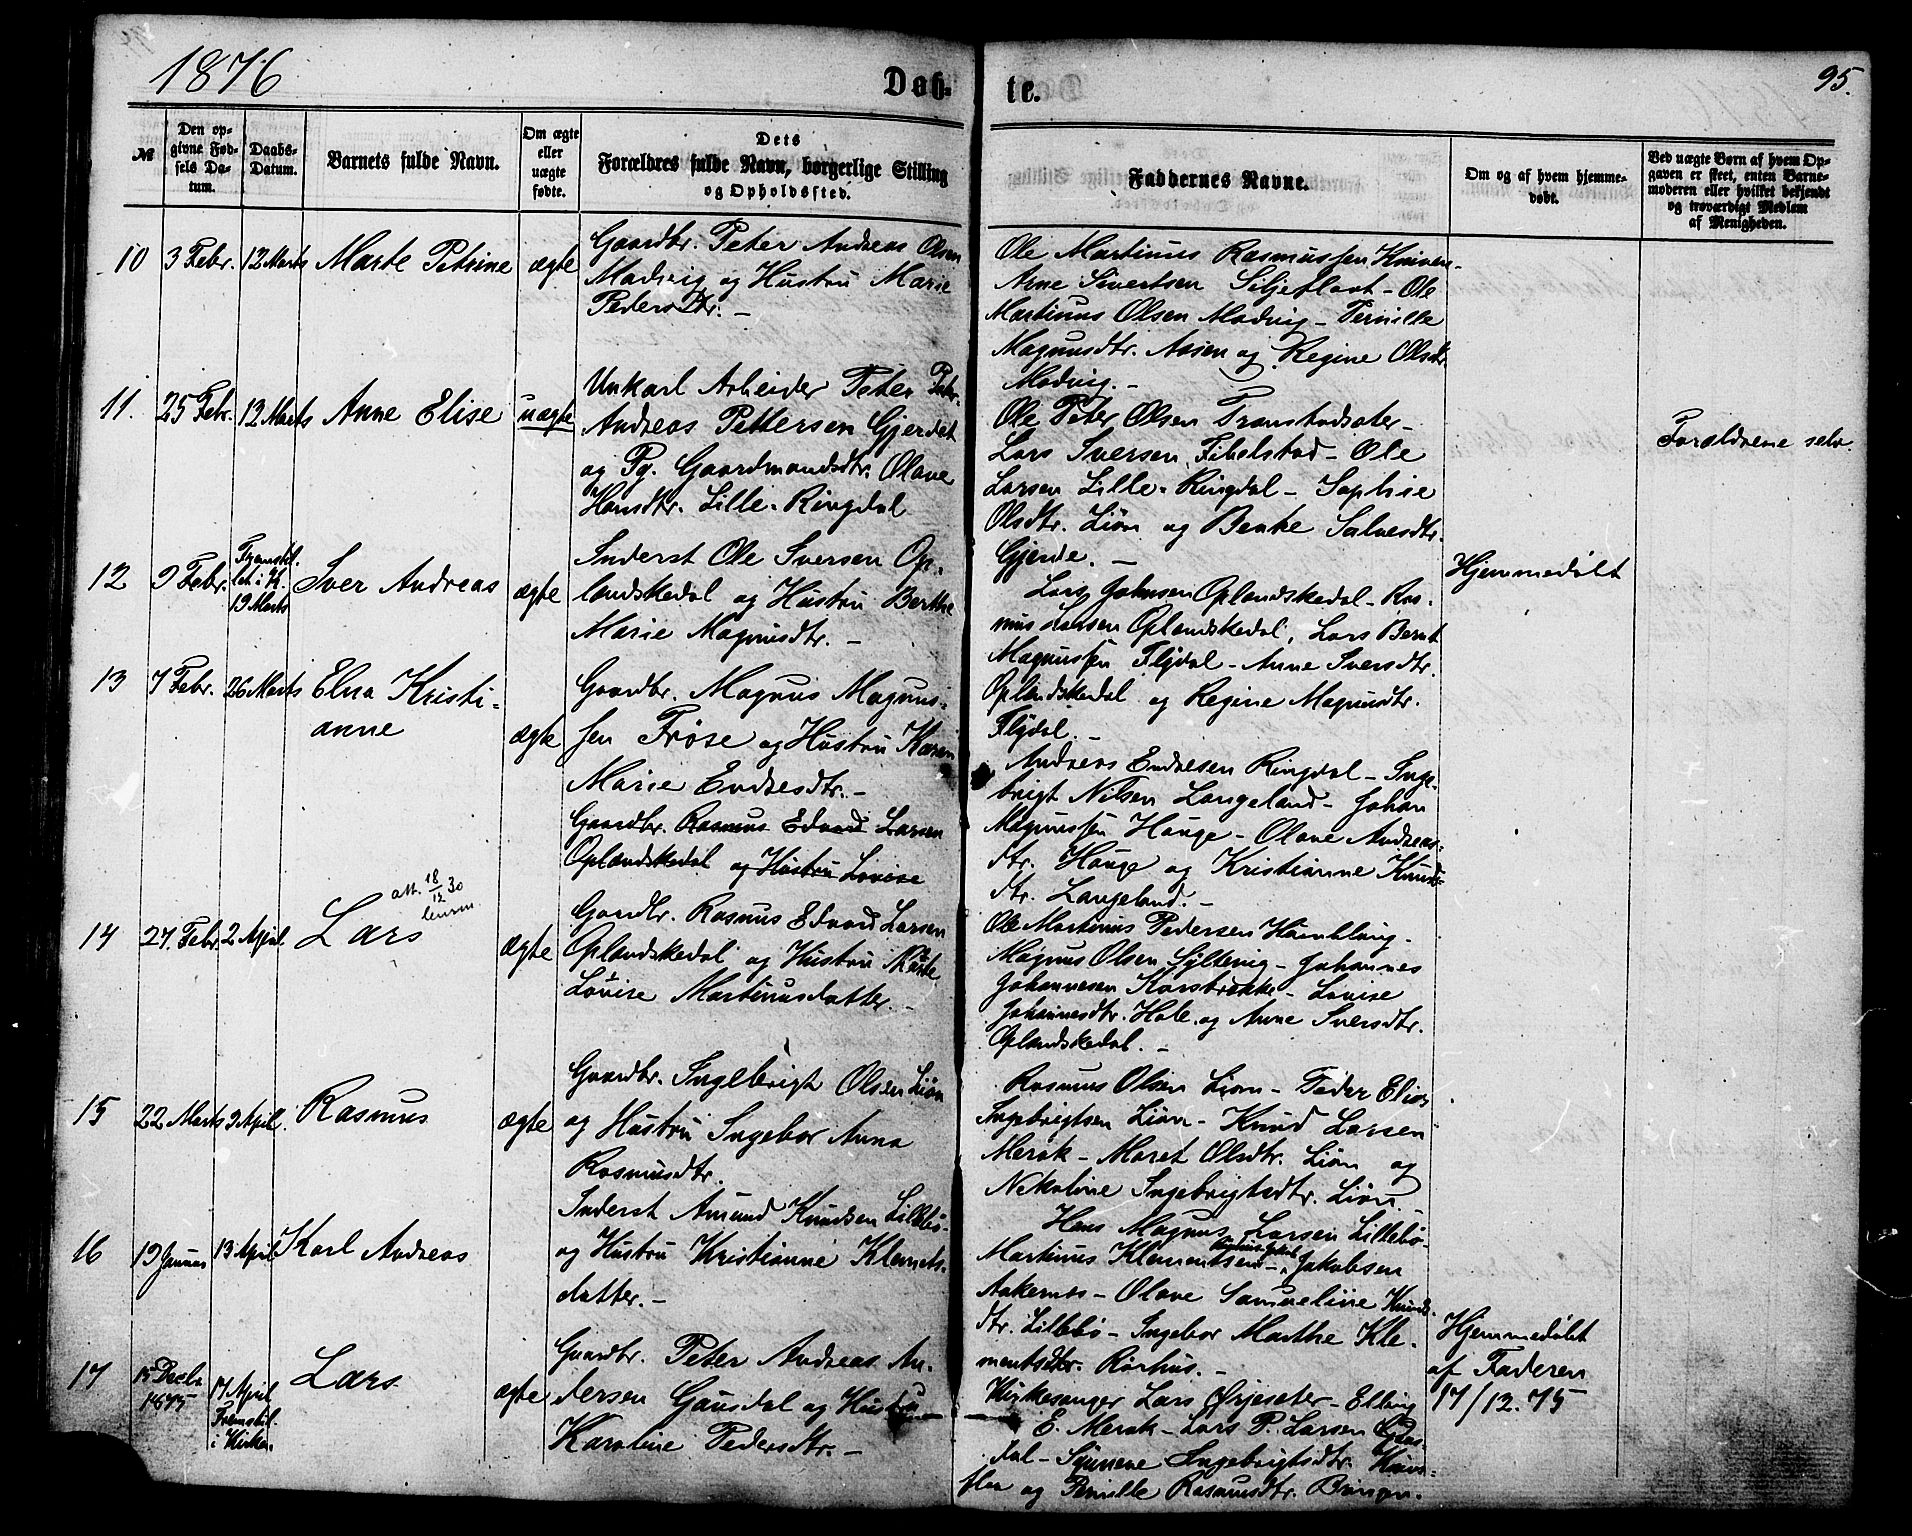 1876
Døb-
te.
95.
№
Den op-
givne Fød-
sels Da-
tum.
Daabs-
Datum.
Barnets fulde Navn.
Om ægte
eller
uægte
fødte.
Dets
Forældres fulde Navn, borgerlige Stilling
og Opholdssted.
Faddernes Navne.
Om og af hvem hjemme-
døbt.
Ved uægte Børn af hvem Op-
gaven er skeet, enten Barne-
moderen eller hvilket bekjendt
og troværdigt Medlem
af Menigheden.
10
3 Febr.
12 Marts
Marte Petrine
ægte
Gaardbr. Peter Andreas Olsen
Madvig og Hustru Marie
Peders Dtr. -
Ole Martinus Rasmussen Kniven-
Arne Sivertsen Siljeflaat - Ole
Martinus Olsen Madvig - Pernille
Magnusdtr. Aasen og Regine Olsdtr.
Madvig. -
11.
25 Febr.
12 Marts
Anne Elise
uægte
Unkarl Arbeider Peter
Andreas Pettersen Gjerdet
og Pg. Gaardmandsdtr. Olave
Hansdtr. Lille-Ringdal
Ole Peter Olsen Transtadsæter -
Lars Iversen Fibelstad - Ole
Larsen Lille-Ringdal - Sophie
Olsdtr. Liøn og Benthe Salvesdtr.
Gjerde. -
Forældrene selv.
12
9 Febr.
Fremstil-
let i K.
19 Marts
Iver Andreas
ægte
Inderst Ole Iversen Op-
landskedal og Hustru Berthe
Marie Magnusdtr. -
Lars Johnsen Oplandskedal - Ras-
mus Larsen Oplandskedal, Lars Bernt
Magnussen Flydal - Anne Iversdtr.
Oplandskedal og Regine Magnusdtr.
Flydal. -
Hjemmedøbt
13
7 Febr.
26 Marts
Elna Kristi-
anne
ægte
Gaardbr. Magnus Magnus-
sen Frøse og Hustru Karen
Marie Endresdtr. -
Andreas Endresen Ringdal - Inge-
brigt Nilsen Langeland - Johan
Magnussen Hauge - Olave Andreas-
dtr. Hauge og Kristianne Knuds-
dtr. Langeland. -
Gaardbr. Rasmus Edvard Larsen
Oplandskedal og Hustru Lovise
14
27. Febr.
2 April.
Lars
att. 18/12 30
ægte
Gaardbr. Rasmus Edvard Larsen
Oplandskedal og Hustru Marte
Lovise Martinusdatter. -
Ole Martinus Pedersen
Magnus Olsen Syltevig - Johannes
Johannesen Korsbrekke - Lovise
Johannesdtr. Hole og Anne Iversdtr.
Oplandskedal. -
15
22 Marts
9 April.
Rasmus
ægte
Gaardbr. Ingebrigt Olsen Liøn
og Hustru Ingebor Anna
Rasmusdtr.
Rasmus Olsen Liøn - Peder Elias
Ingebrigtsen Liøn - Knud Larsen
Merok - Maret Olsdtr. Liøn og
Nekoline Ingebrigtsdtr. Liøn. -
16
19 Januar
13 April
Karl Andreas
ægte
Inderst Amund Knudsen Lillebø
og Hustru Kristianne Klemets-
datter. -
Hans Magnus Larsen Lillebø-
Martinus Klementsen - Jakobsen
Aakernes - Olave Samueline Knuds-
dtr. Lillebø - Ingebor Marthe Kle-
mentsdtr. Rørhus. -
17
15 Decbr.
1875
17 April
Fremstil.
i Kirken
Lars
ægte
Gaardbr. Peter Andreas An-
dersen Gausdal og Hustru
Karoline Pedersdtr. -
Kirkesanger Lars Ørjeseter - Elling
E. Merok - Lars P. Larsen Gaus-
dal - Synneve Ingebrigtsdtr.
og Pernille Rasmusdtr.
Hjemmedøbt
af Faderen
17/12.75